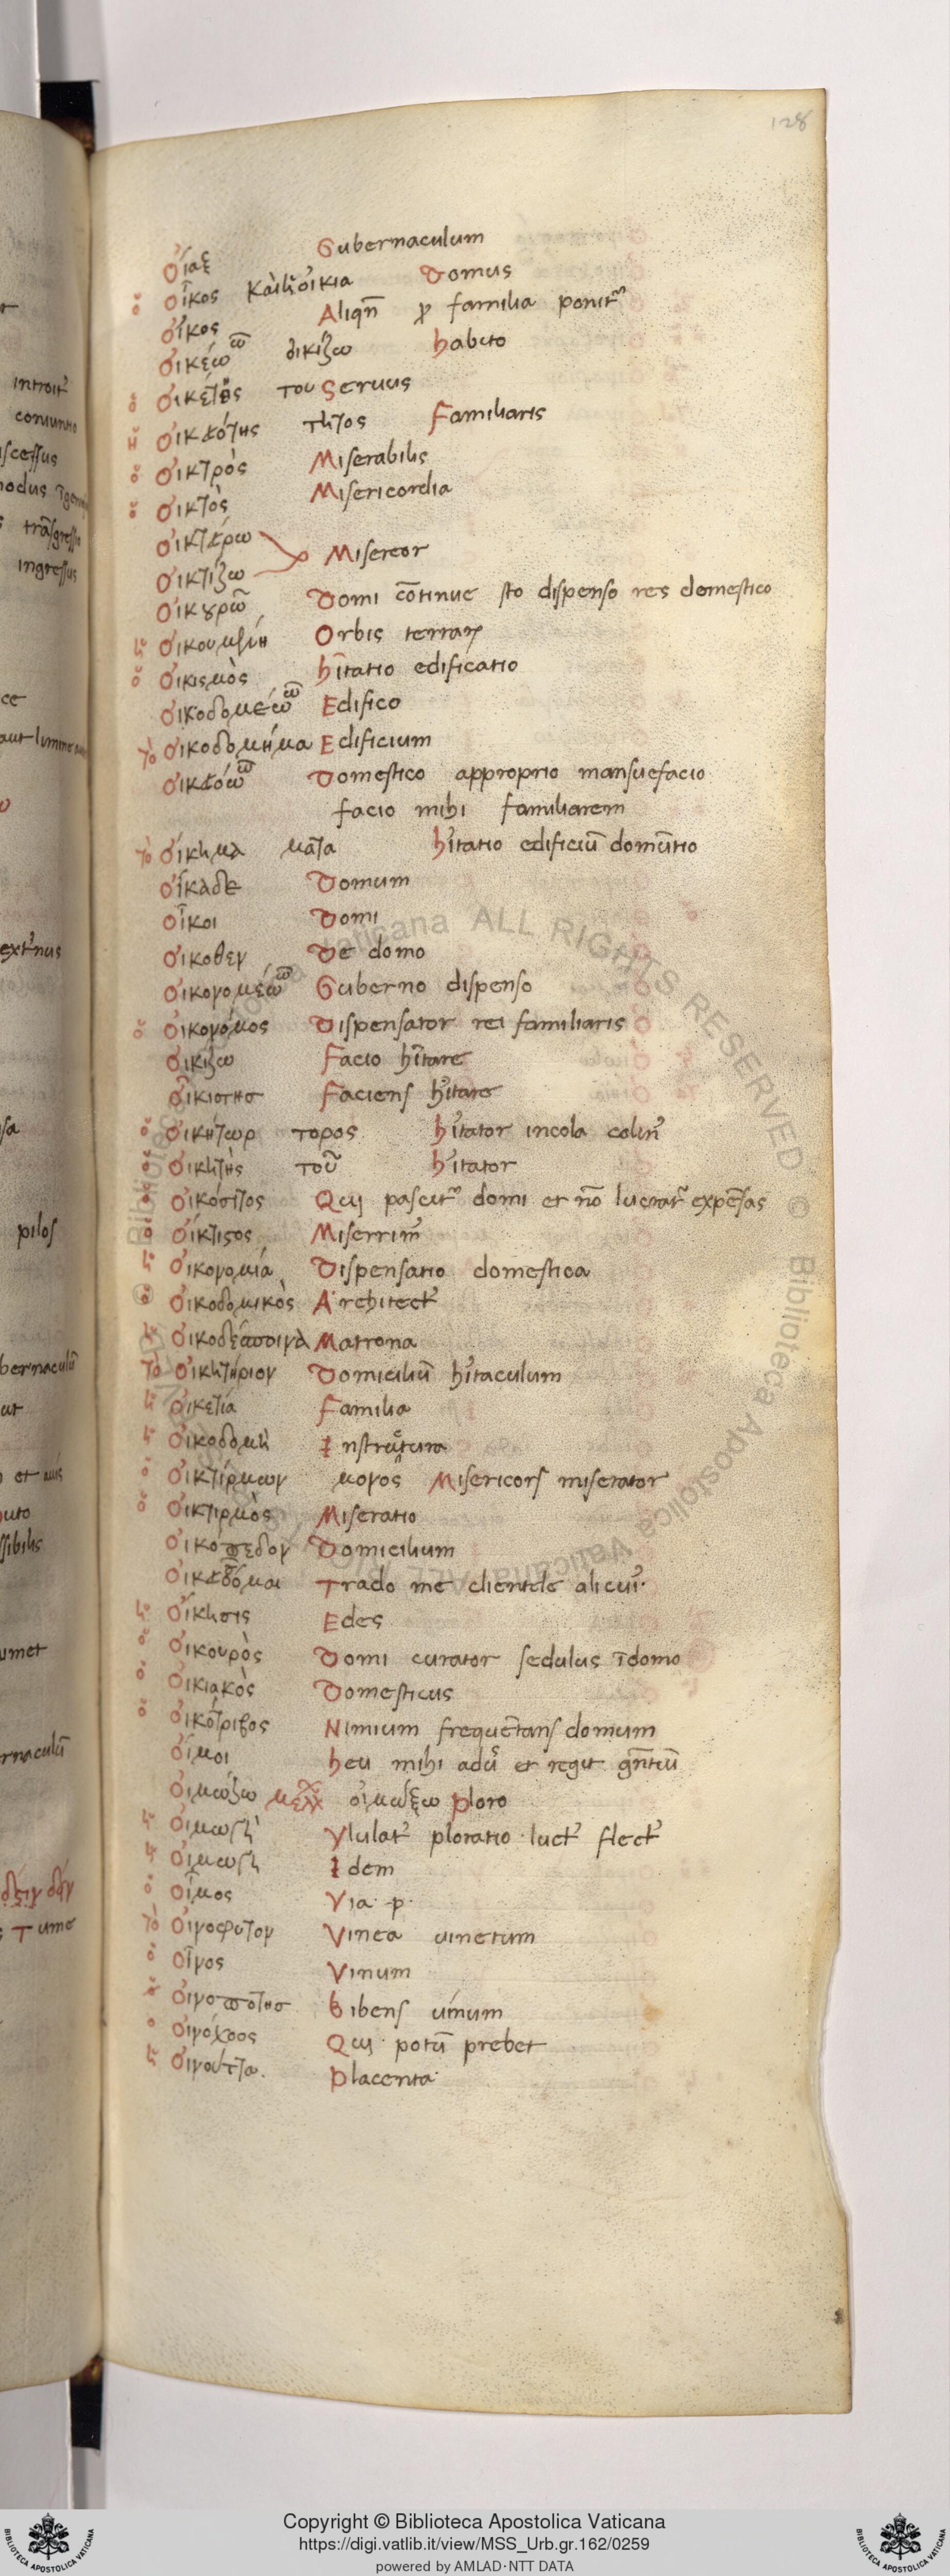 128
οἴαξ Gubernaculum
ὁ οἶκος καὶ ἡ οἰκία Domus
οἶκος Aliqn̄ ꝓ familia ponit᷑
οἰκέω ῶ οἰκίζω habito
ὁ οἰκέτης του Seruus
ἡ οἰκειότης τητος Familiaris
ὁ οἰκτρὸς Miserabilis
ὁ οἰκτὸς Misericordia
οἰκτείρω
οἰκτίζω Misereor
οἰκουρῶ Domi cōtinue sto dispenso res domestico
ἡ οἰκουμένη Orbis terraꝝ
ὁ οἰκισμὸς h̄itatio edificatio
οἰκοδομέω ῶ Edifico
τὸ οἰκοδομήμα Edificium
οἰκειόω ῶ Domestico approprio mansuefacio
facio mihi familiarem
τὸ οἴκημα ματα h̄itatio edificiū domūtio
οἴκαδε Domum
οἶκοι Domi
οικοθεν De domo
οἰκονομέω ῶ Guberno dispenso
ὁ οἰκονόμος Dispensator rei familiaris
οἰκίζω Facio h̄itare
οἰκιστησ Faciens h̄itare
ὁ οἰκήτωρ τορος h̄itator incola
ὁ οἰκητὴς τοῦ h̄itator
ὁ οἰκόσιτος Qui pascit᷑ domi et nō lucrat᷑ expēsas
ὁ οἴκτιστος Miserrim᷒
ἡ οἰκονομία Dispensatio domestica
ὁ οἰκοδομικὸς Architect᷒
ἡ οἰκοδέσποινα Matrona
τὸ οἰκητήριον Domiciliū h̄itaculum
ἡ οἰκετία Familia
ἡ οἰκοδομὴ
ὁ οἰκτίρμων μονος Misericors miserator
ὁ οἰκτιρμὸς Miseratio
οἰκοπεδον Domicilium
οἰκειοῦμαι Trado me clientele alicui·
ἡ οἴκησις Edes
ὁ οἰκουρὸς Domi curator sedulus ī domo
ὁ οἰκιακὸς Domesticus
ὁ οἰκότριβος Nimium frequētans domum
οἴμοι heu mihi et regit
οἰμώζω οἰμώξω ploro
ἡ οἰμωγὴ Ululat᷒ ploratio luct᷒ flect᷒
ἡ οἰμωγη Idem
ὁ οἶμος Via · p·
τὸ οἰνοφυτον Vinea uinetum
ὁ οἶνος Vinum
ὁ οἰνοπότησ bibens uinum
ὁ οἰνόχοος Qui potū prebet
ἡ οἰνούττα. placenta·
introit᷒
ingressus
pilos
Copyright © Biblioteca Apostolica Vaticana
https://digi.vatlib.it/view/MSS_Urb.gr.162/0259
powered by AMLAD·NTT DATA